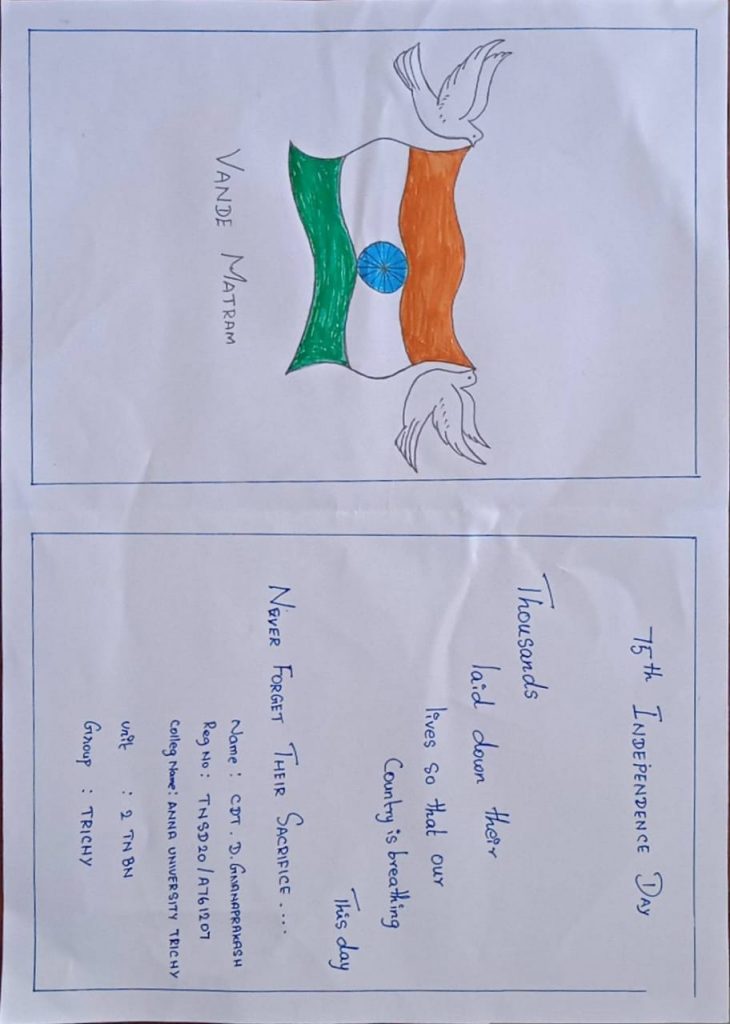 VANDE MATRAM
75th INDEPENDENCE DAY
Thousands
laid down their
lives so that our
Country is breathing
This day
NEVER FORGET THEIR SACRIFICE....
Name : CDT. D. GNANAPRAKASH
Reg No : TNSD20/A761207
Colleg Name: ANNA UNIVERSITY TRICHY
unit : 2 TN BN
Group : TRICHY